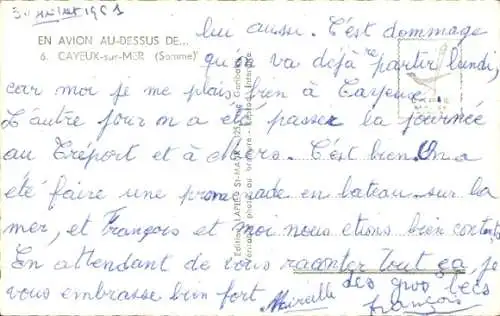 3 juillet 1961
EN AVION AU-DESSUS DE...
6. CAYEUX-sur-MER (Somme)
lui aussi. C'est dommage
qu'on va déjà repartir lundi,
car moi je me plais bien à Cayeux.
L'autre jour on a été passer la journée
au Tréport et à Mers. C'est bien. On a
été faire une promenade en bateau sur la
mer, et François et moi nous étions bien contents
En attendant de vous raconter tout ça, je
vous embrasse bien fort Mireille
des gros becs
françois
Editions LAPIE, St-MAUR (Seine)